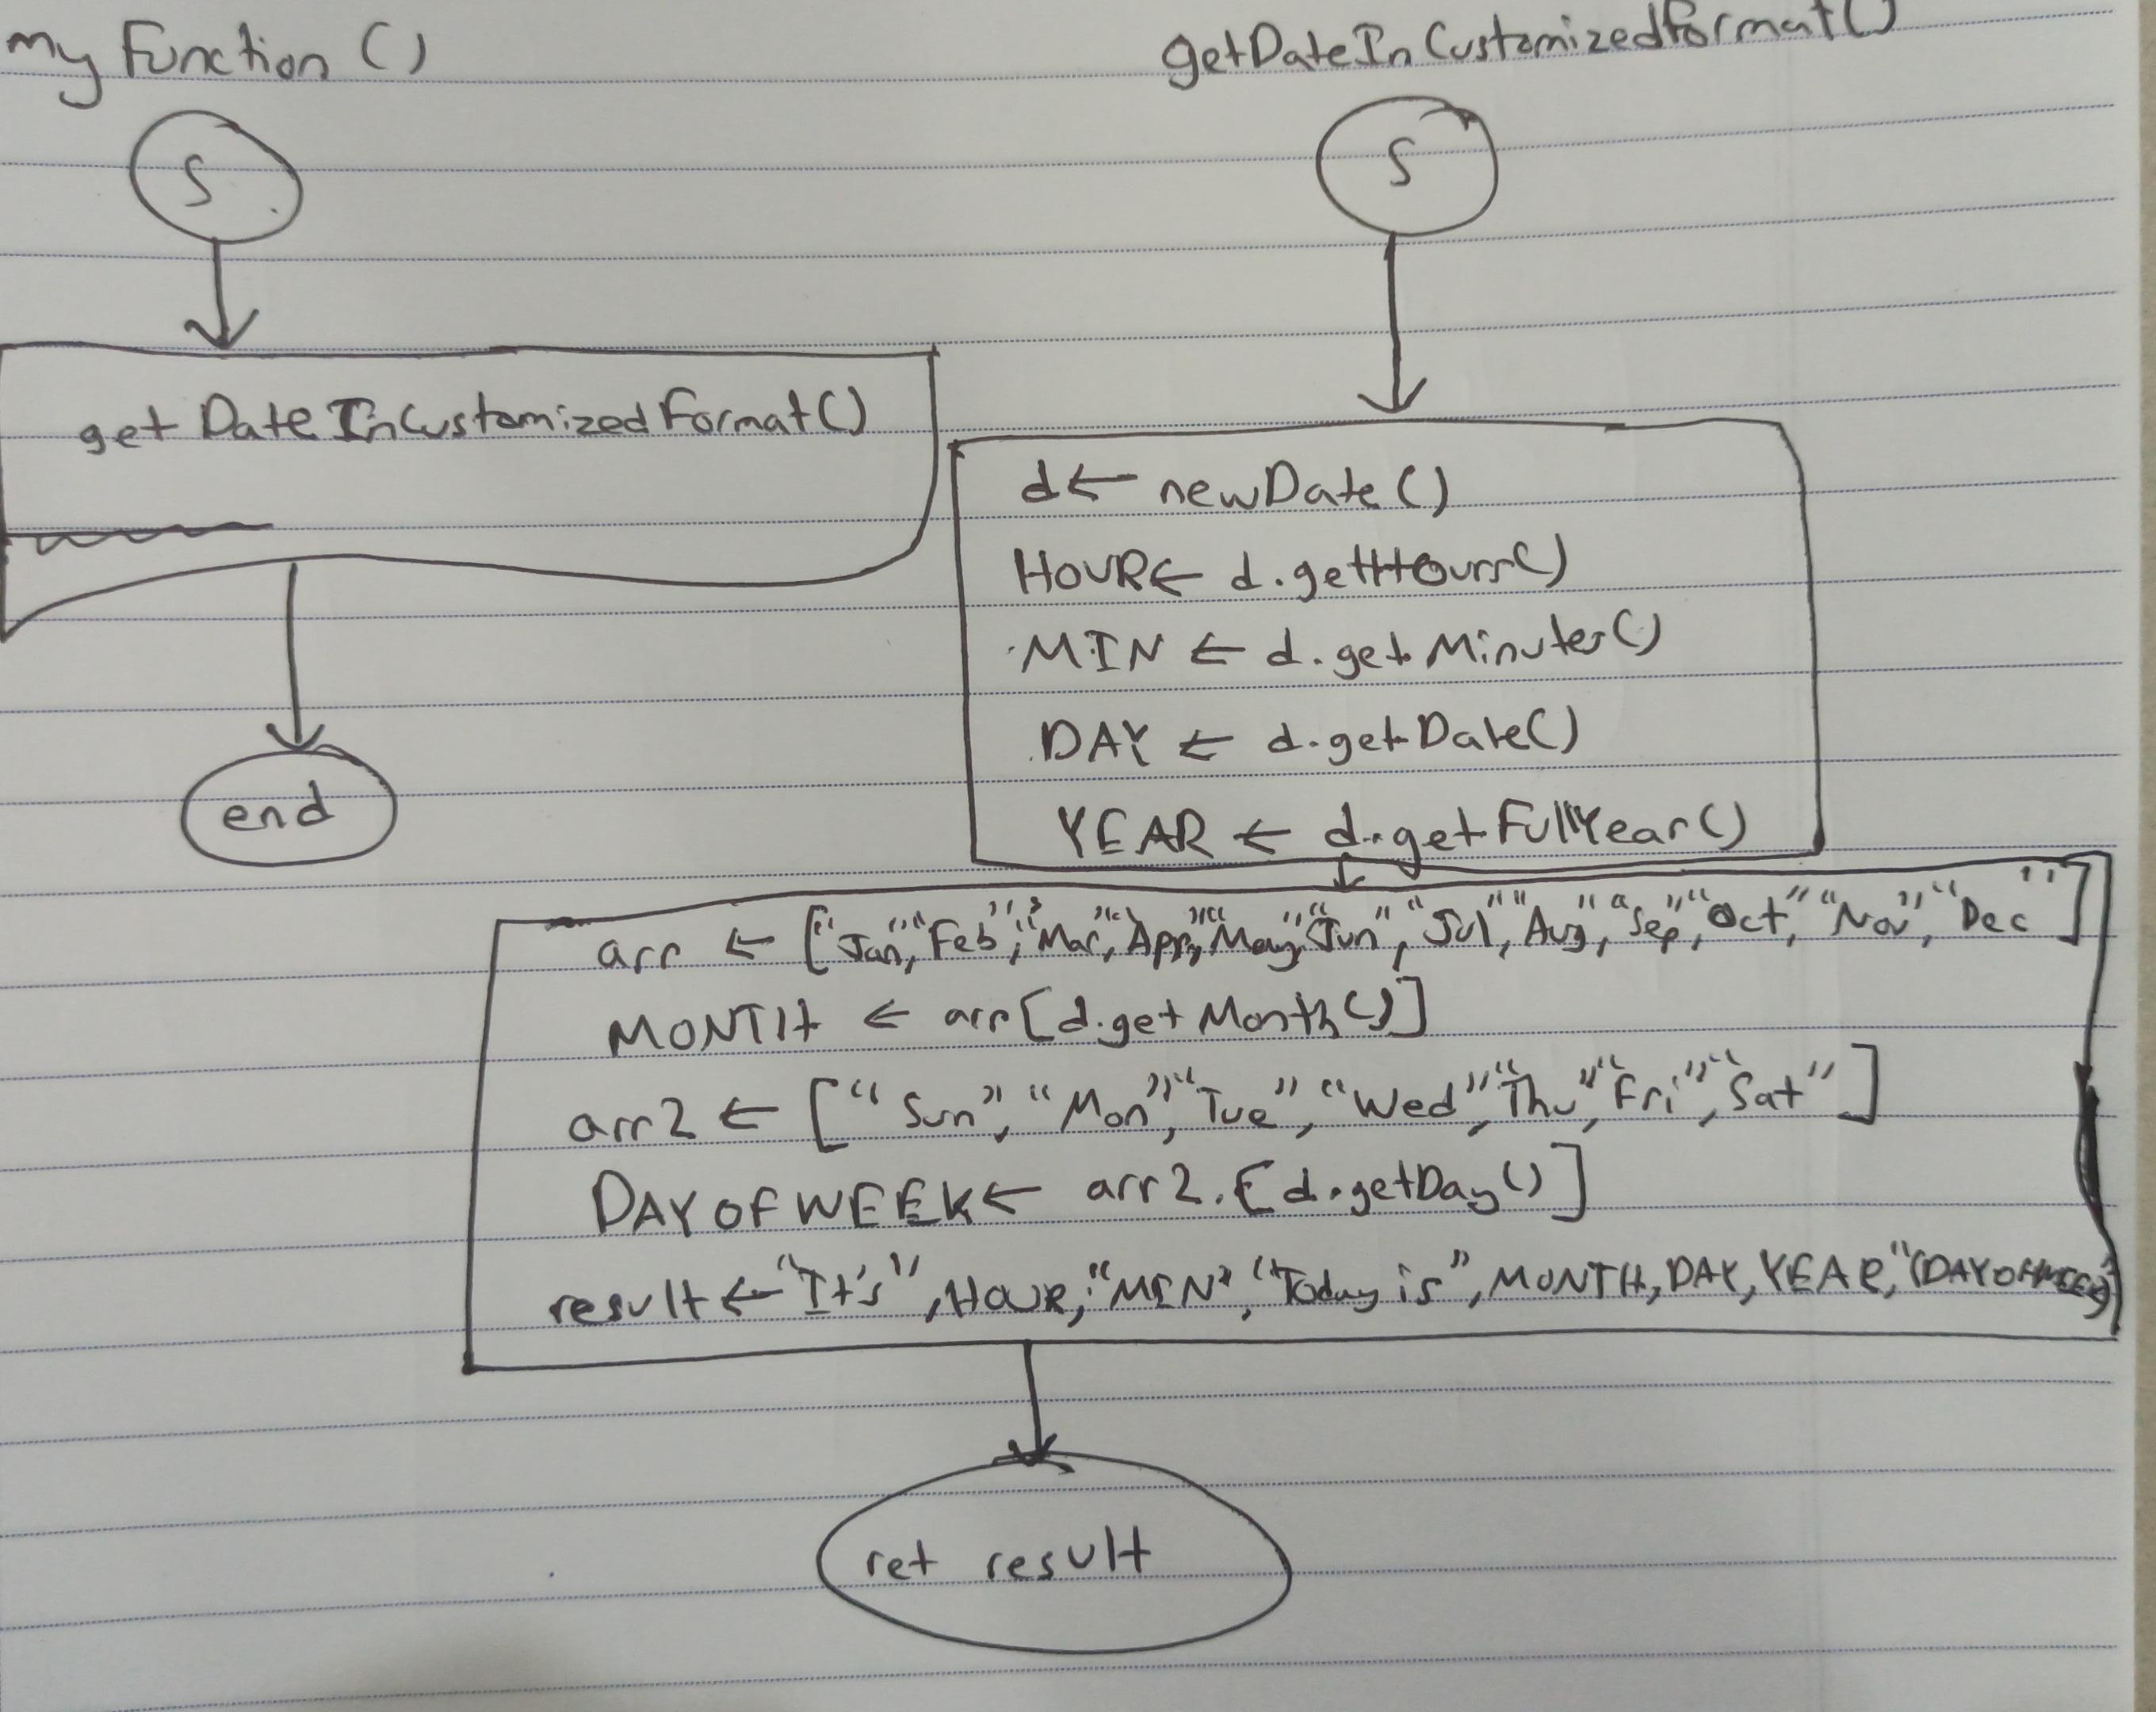 my Function ()
S
getDateInCustomizedFormat()
end
getDateInCustomizedFormat()
S
d ← newDate()
HOUR ← d.getHours()
MIN ← d.getMinutes()
DAY ← d.getDate()
YEAR ← d.getFullYear()
arr ← ["Jan", "Feb", "Mar", "Apr", "May", "Jun", "Jul", "Aug", "Sep", "Oct", "Nov", "Dec"]
MONTH ← arr[d.getMonth()]
arr2 ← ["Sun", "Mon", "Tue", "Wed", "Thu", "Fri", "Sat"]
DAYOFWEEK ← arr2.[d.getDay()]
result ← "It's", HOUR, ":MIN", "Today is", MONTH, DAY, YEAR, "(DAYOFWEEK)
ret result